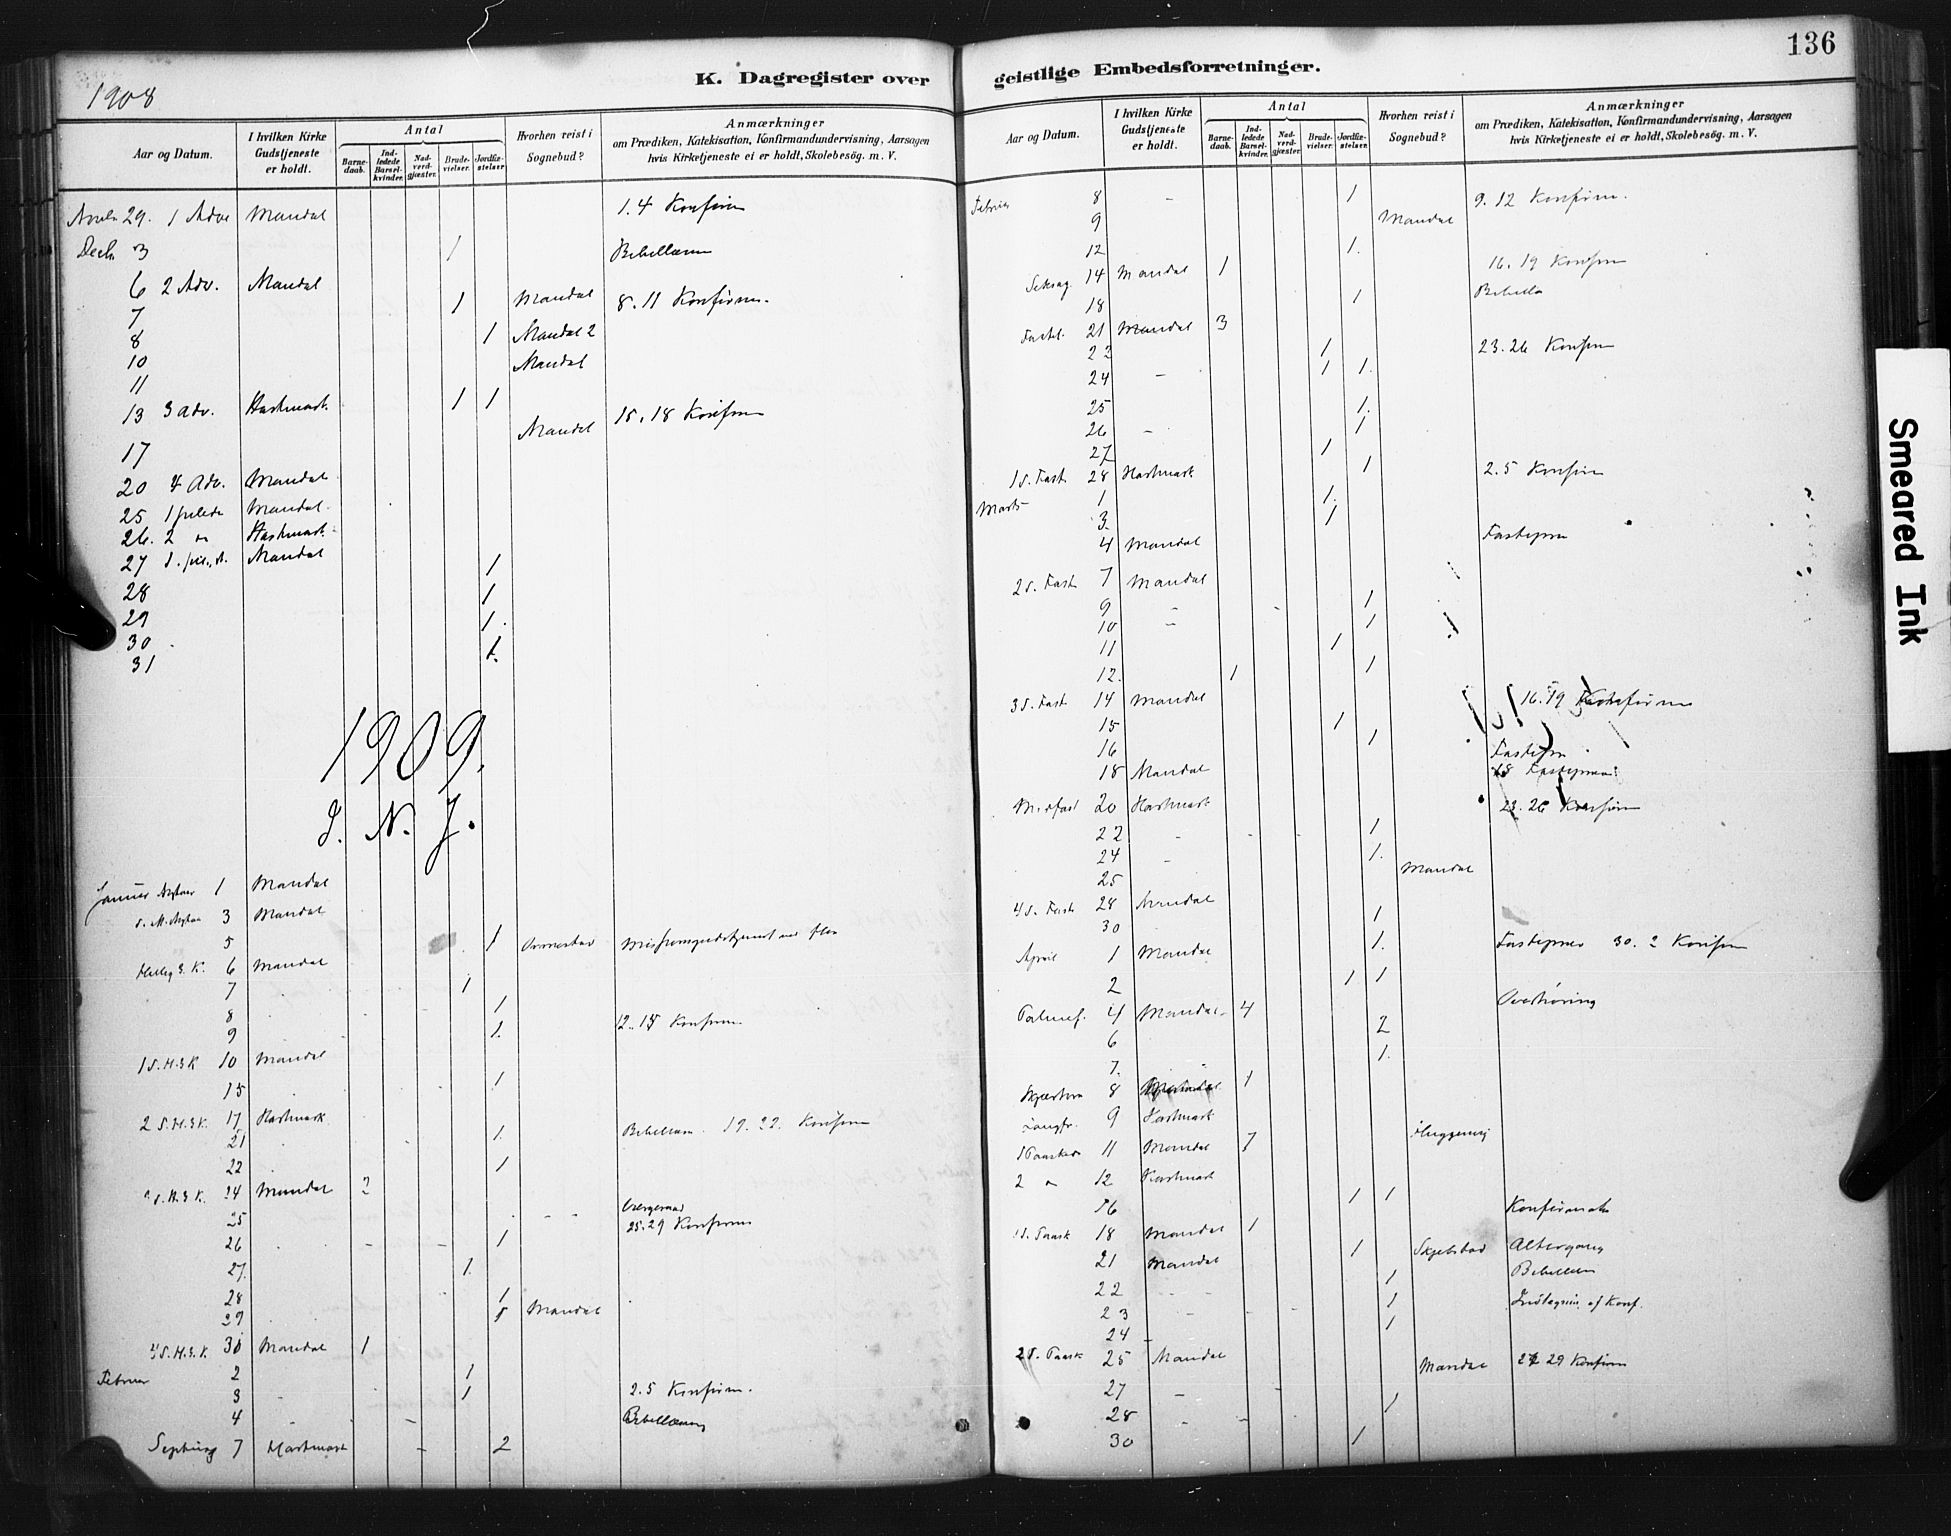 136
1908
K. Dagregister over
geistlige Embedsforretninger.
Aar og Datum.
I hvilken Kirke Gudstjeneste er holdt.
Antal
Barnedaab.
Indledede Barselkvinder.
Nadverdgjæster.
Brudevielser.
Jordfæstelser.
Hvorhen reist i Sognebud?
Anmærkninger
om Prædiken, Katekisation, Konfirmandundervisning, Aarsagen
hvis Kirketjeneste ei er holdt, Skolebesög. m. V.
29. 1 Adv Mandal 1.4 Konfirm
Decb. 3 1 Bibellæsn
6 2 Adv. Mandal
7 1 Mandal 8.11 Konfirm.
8 1 Mandal 2
10 Mandal
11
13 3 Adv. Hartmark 1 1 15.18 Konfirm
Mandal
17
20 4 Adv. Mandal
25 1 Juleda Mandal
26. 2 " Hartmark
27 Mandal
28 1
29 1
30 1
31 1
1909.
I. N. J.
Januar 1 Mandal
3 Mandal
5 1
Hellig 3 K. 6 Mandal
7 1
8 1
9 1 12.15 Konfirm
1 S. H. 3 K 10 Mandal
15 1
2 S. H. 3 K. 17 Hartmark
21 1 Bibellæsn. 19.22. Konfirm
22 1
S. H. 3 K. 24 Mandal
25 25.29 Konfirm
26 1
27 1
28 1
29 Mandal
4 S. H. 3. K. 30 Mandal 1
Februar 2 1
3 1 2.5 Konfirm.
4 Bibellæsning
7 Hartmark 2
Aar og Datum.
I hvilken Kirke Gudstjeneste er holdt.
Antal
Barnedaab.
Indledede Barselkvinder.
Nadverdgjæster.
Brudevielser.
Jordfæstelser.
Hvorhen reist i Sognebud?
Anmærkninger
om Prædiken, Katekisation, Konfirmandundervisning, Aarsagen
hvis Kirketjeneste ei er holdt, Skolebesög. m. V.
Februar 8 1 9.12 Konfirm.
9 Mandal
12 1
14 Mandal 1 16.19 Konfirm
18 1
Fastel. 21 Mandal 3
22 1 23.26 Konfirm
24 1 1
25 1
26 1
27 1
1 S. Fast 28 Hartmark 1 2.5 Konfirm
Marts 1 1
3 1
4 Mandal
2 S. Fast 7 Mandal
9 1
10 1
11 1
12. 1 1
3 S. Fast 14 Mandal 16.19 Konfirm
15 1
16 1
18 Mandal
Midfast 20 Hartmark 23.26 Konfirm
22 1
24 1
25 Mandal
4 S. Fast 28 Mandal
30 1
April 1 Mandal 1 30.2 Konfirm
2 1 1
Palmes. 4 Mandal 4 Overhøring
6 2
7. 1
8 1
Langfr. 9 Hartmark
1 Paaskeda 11 Mandal 7
2 " 12 Hartmark
16 1 1 Konfirmat
1 S. Paask 18 Mandal 1
21 Mandal 1 Altergang
22 1 Bibellæsn
23 1 af Konf.
24 1
2 S. Paask 25 Mandal Mandal 29 Konfirm
27
28 1
30 1
Smeared Ink